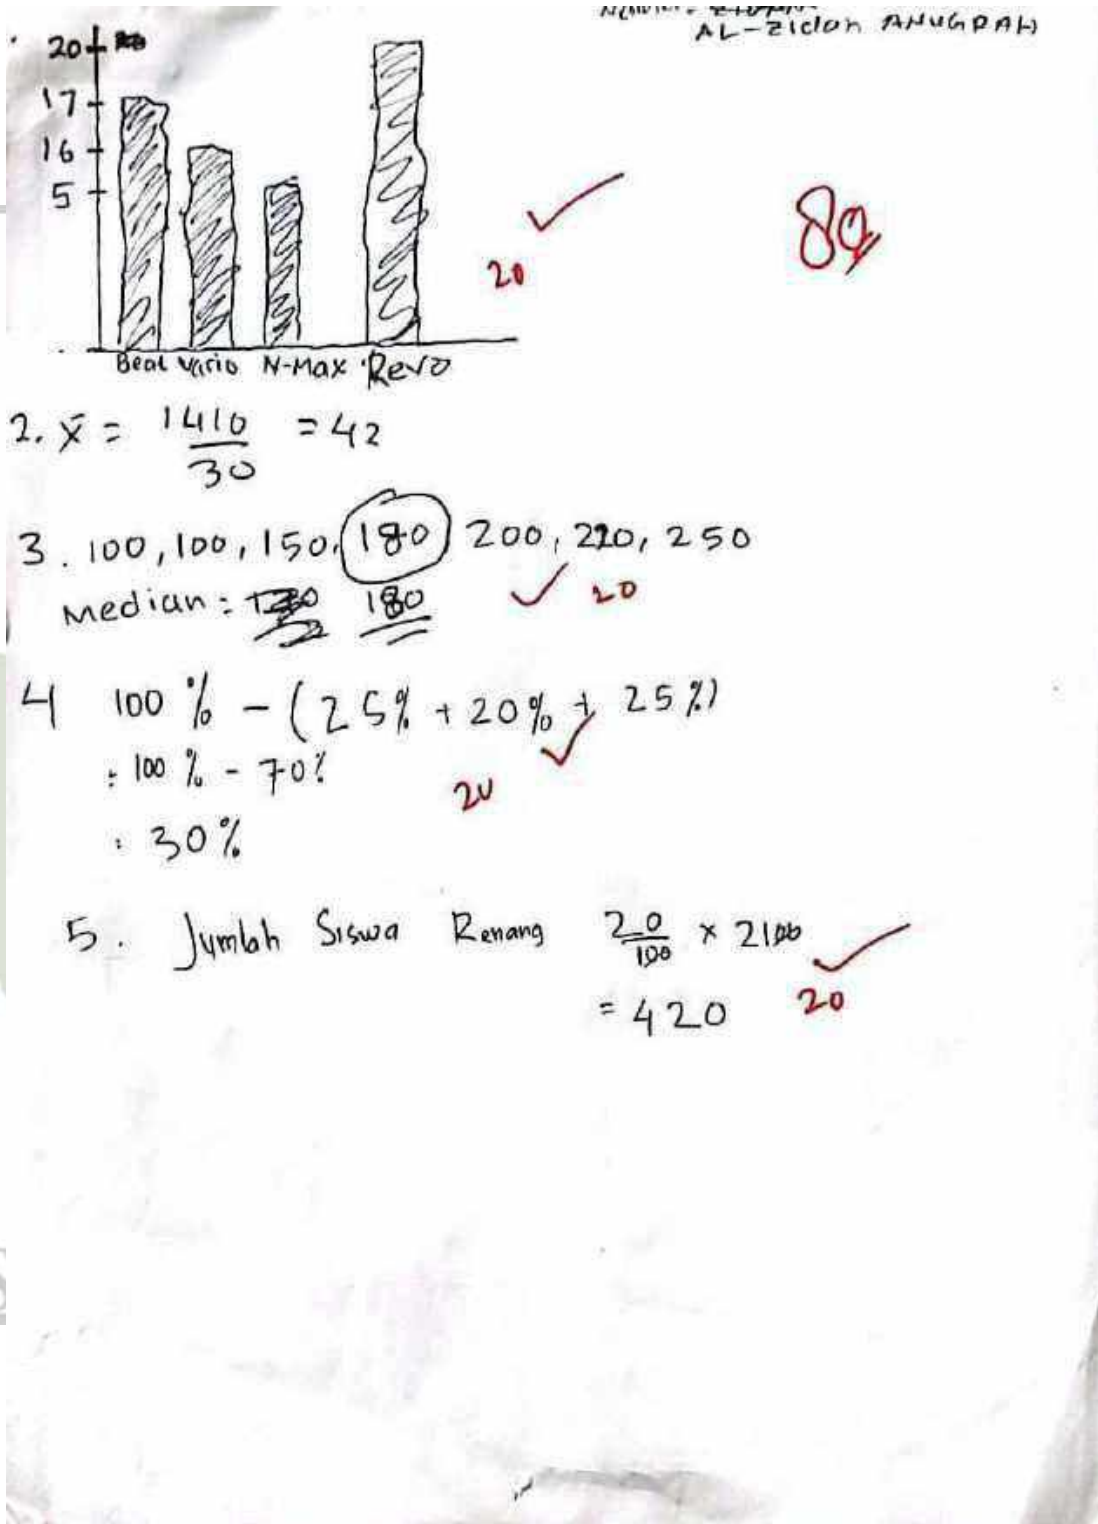 AL-Zidan ANUGRAH
20
17
16
5
Beat Vario N-Max Revo
20
80
2. x̄ = 1410/30 = 42
3. 100, 100, 150, 180 200, 220, 250
Median: 180
20
4 100% - (25% + 20% + 25%)
: 100% - 70%
20
: 30%
5. Jumlah Siswa Renang 20/100 x 2100
= 420
20